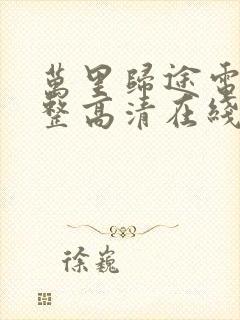 萬里歸途電
整高清在綫
徐巍